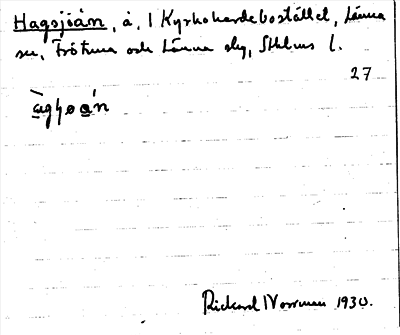 Hagsjöån, å, 1 Kyrkoherdebostället, Länna
sn, Frötuna och Länna skg, Sthlms l.
27
Rickard Norman 1930.